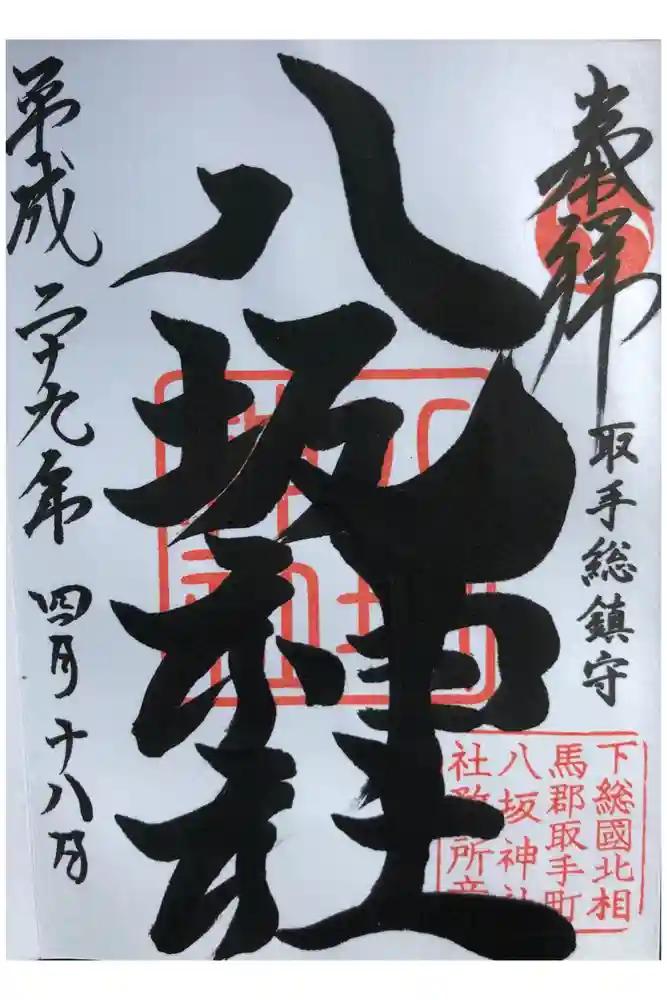 奉拝
取手総鎮守
八坂神社
平成二十九年四月十八日
下総國北相
馬郡取手町
八坂神社
社務所章